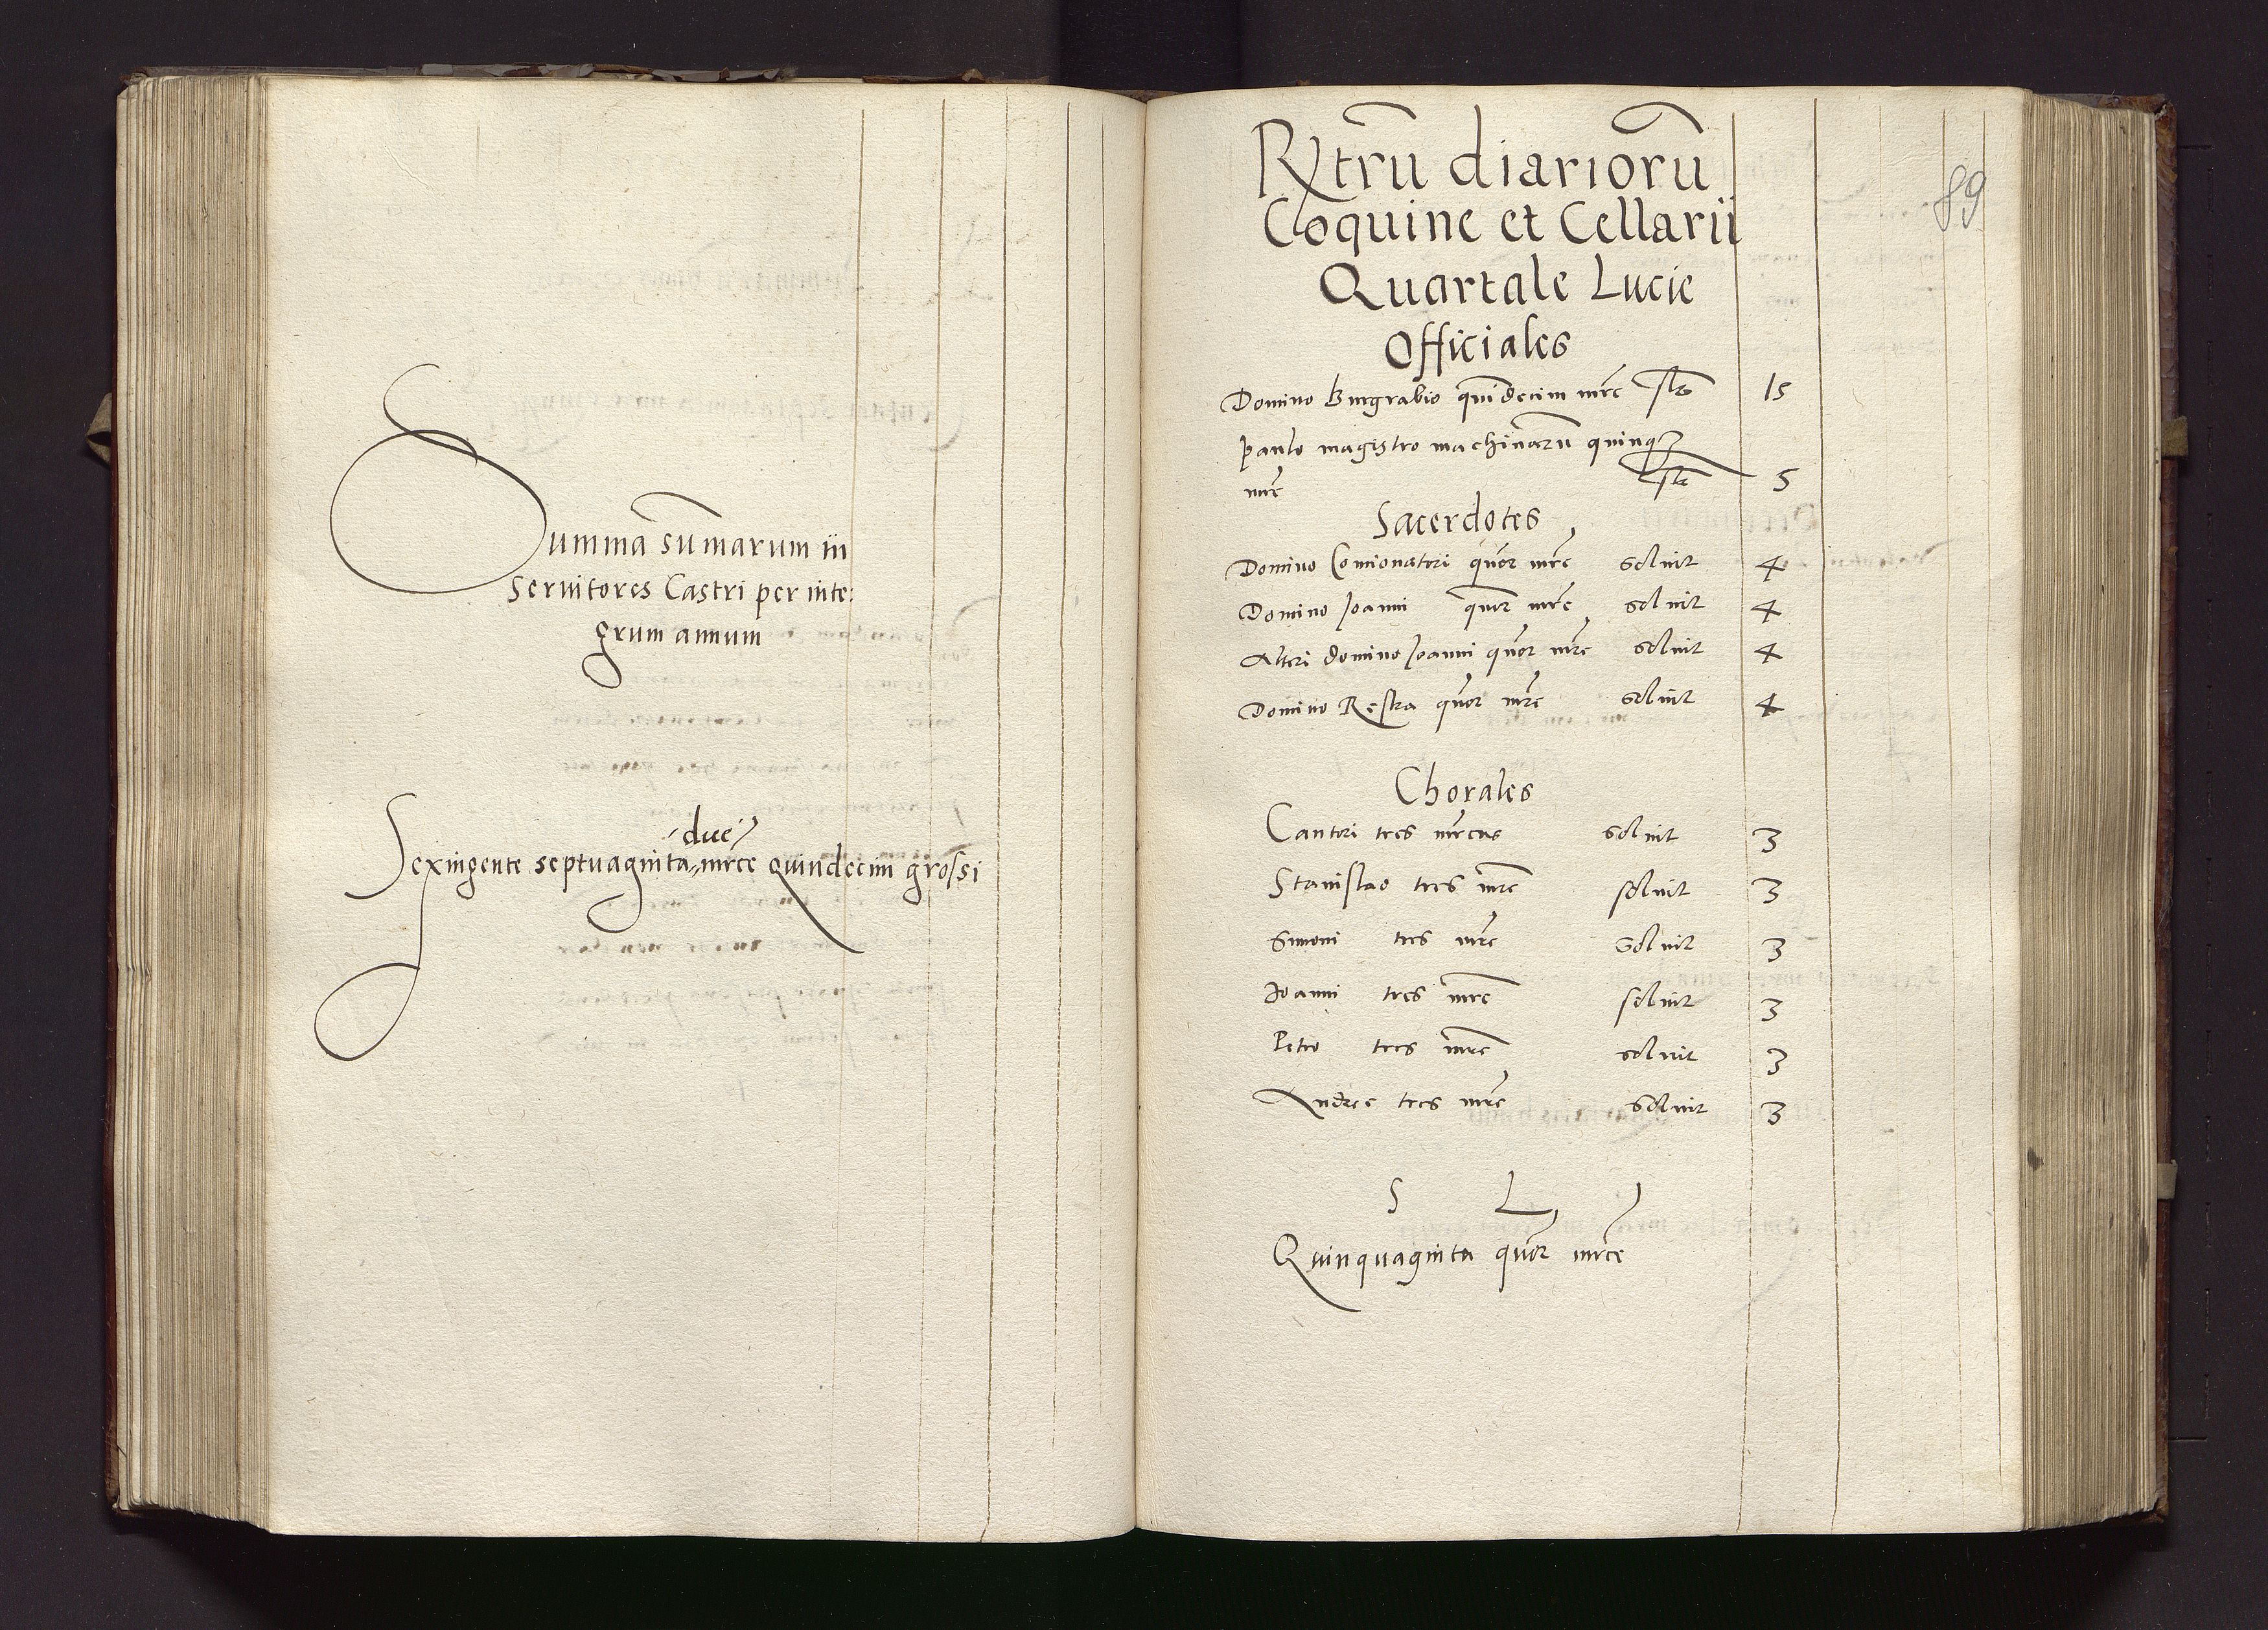 Summa sum̄arum in
Servitores Castri per inte:
grum annum
due
Sexingente septuaginta mrce quindecim grossi
89
Rx̄trū diariorū
Coquine et Cellarii
Quartale Lucie
Officiales
Domino Burgrabio quīdecim mrce 15
paulo magistro machinarū quinq3
mrce 5
Sacerdotes
Domino Concionatori quor mrce solvit 4
Domino Joanni quor mrce solvit 4
Alteri domino Joanni quor mrce solvit 4
Domino Restra quor mrce solvit 4
Chorales
Cantori tres mrcas solvit 3
Stanislao tres mrce solvit 3
Simoni tres mrce solvit 3
Joanni tres mrce solvit 3
Petro tres mrce solvit 3
Andree tres mrce solvit 3
S L
Quinquaginta quor mrce